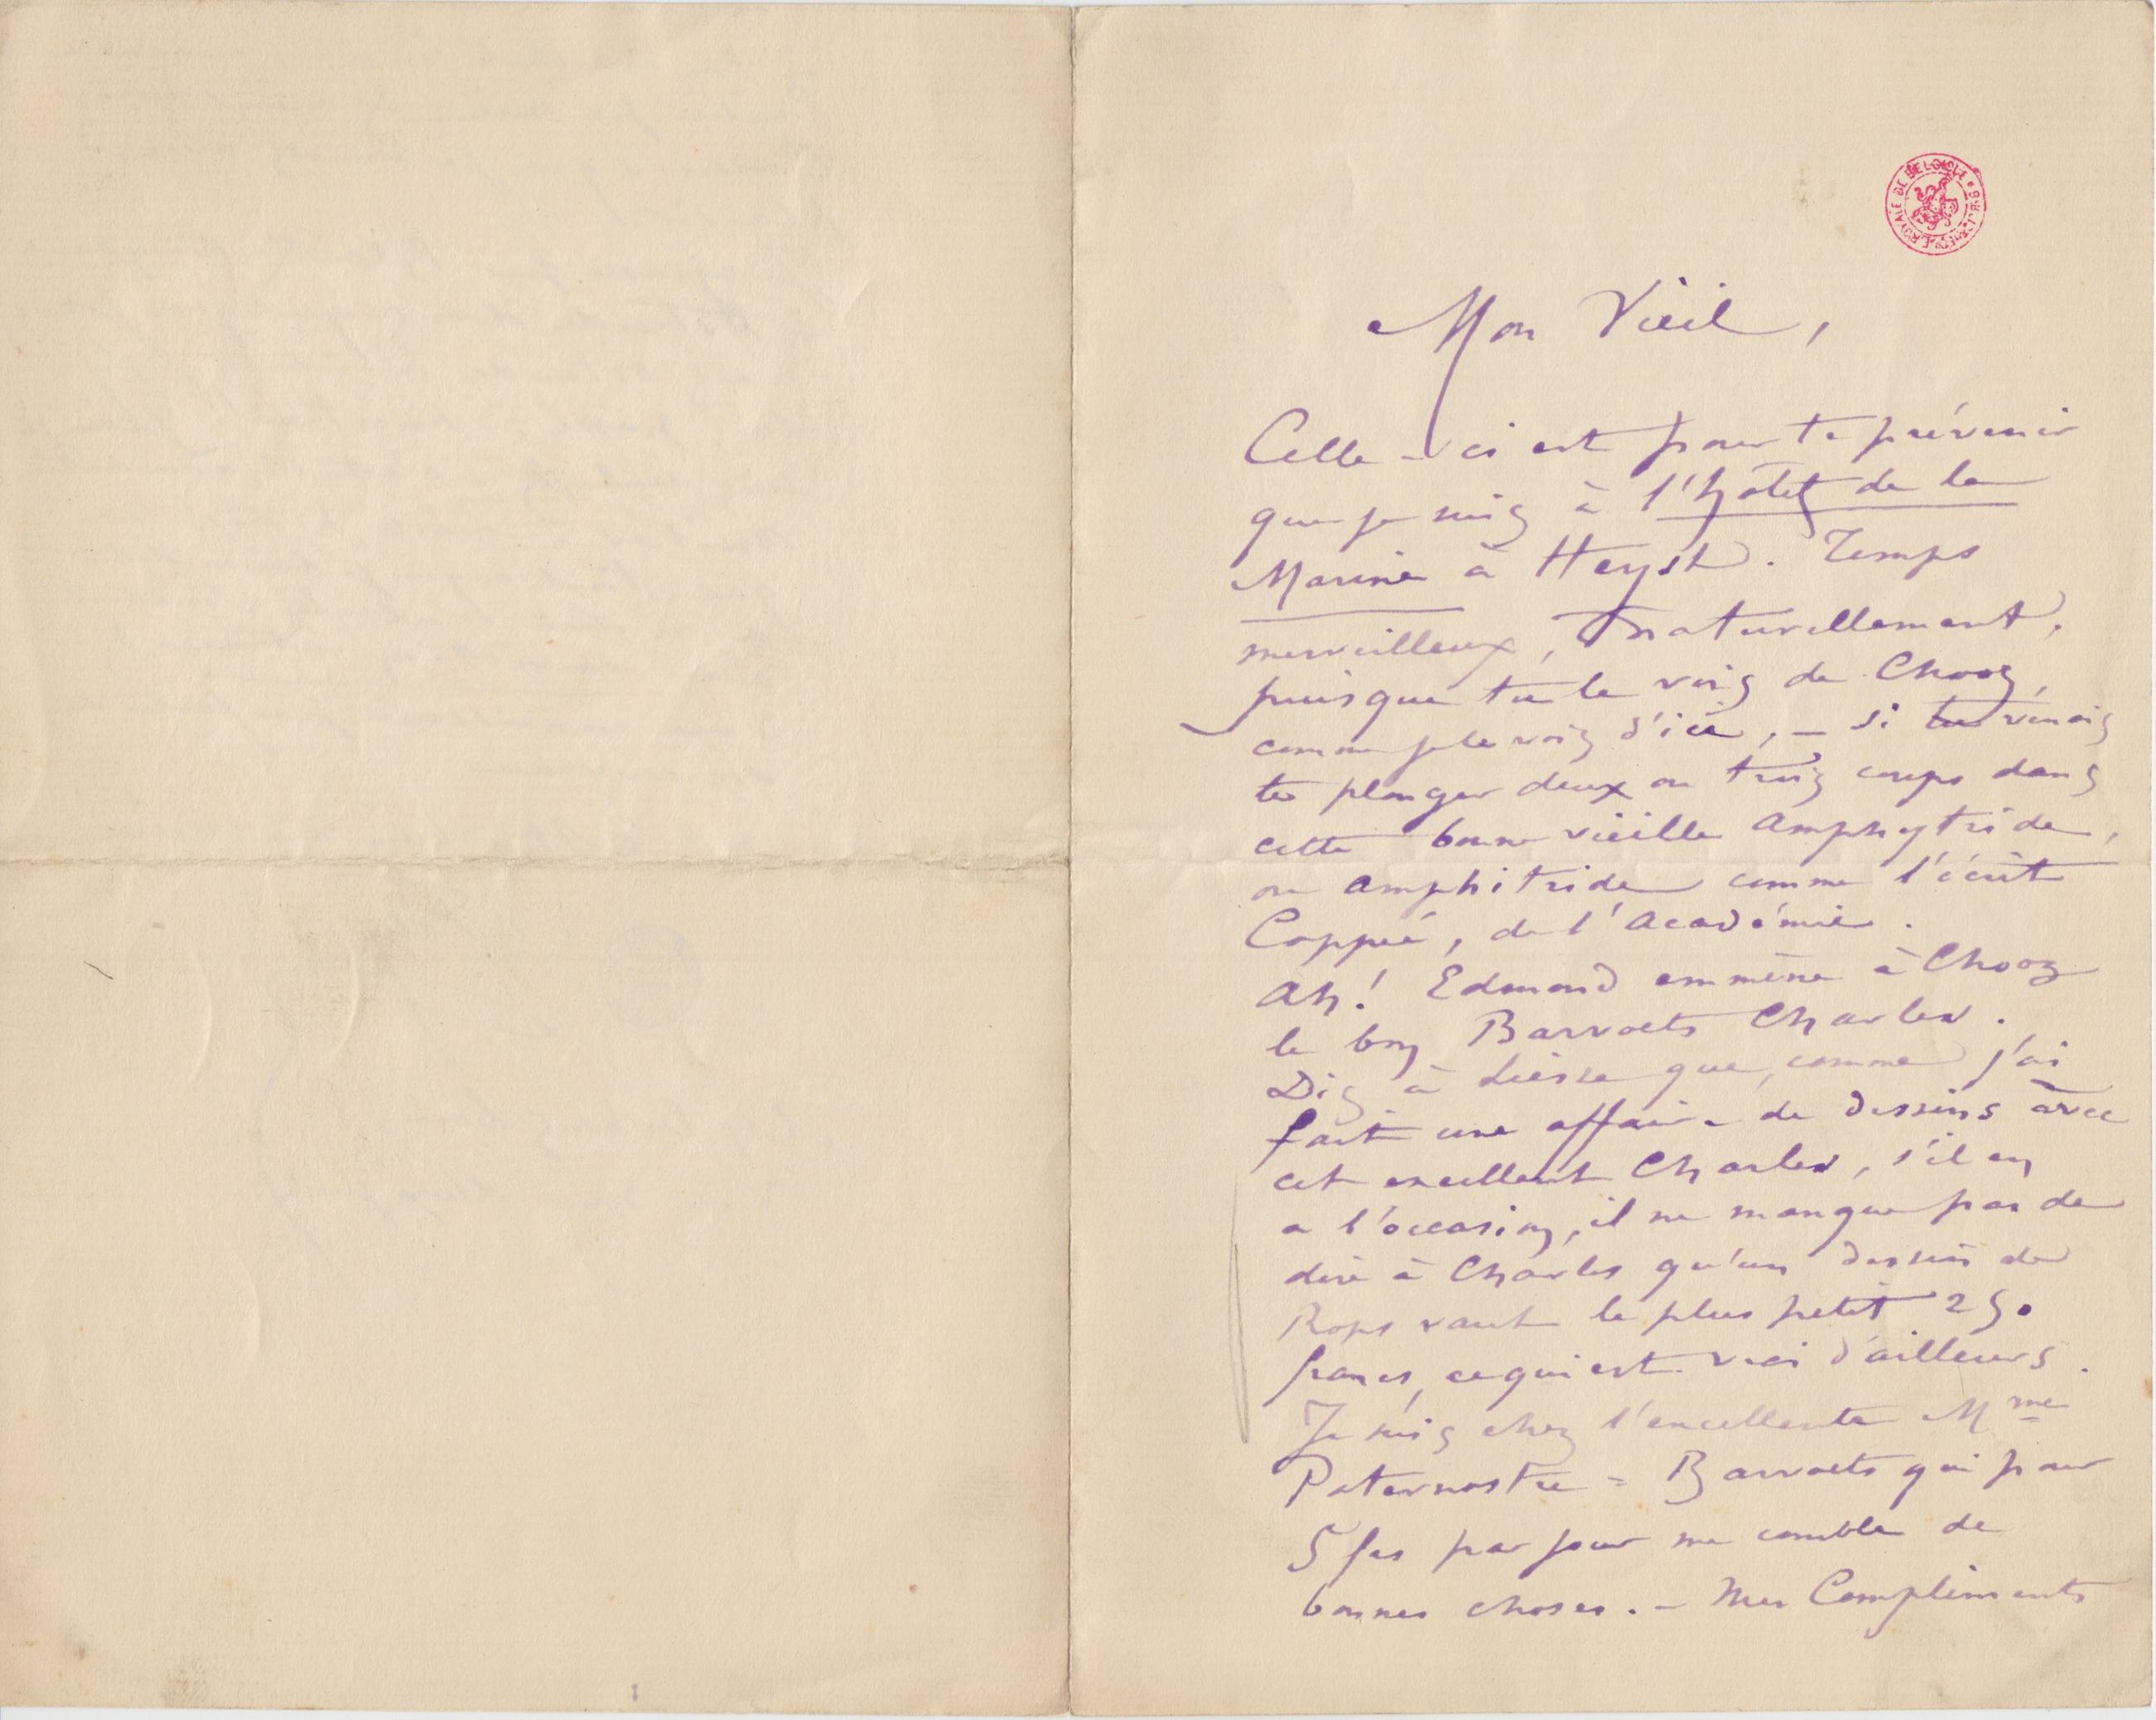 BIBLIOTHÈQUE ROYALE DE BELGIQUE
Mon Vieil,
Celle-ci est pour te prévenir
que je suis à l'hôtel de la
Marine à Heyst. Temps
merveilleux, naturellement,
puisque tu le vois de Chooz,
comme je le vois d'ici, – si tu venais
te plonger deux ou trois coups dans
cette bonne vieille Amphytride,
ou Amphitride comme l'écrit
Coppée, de l'Académie.
Ah! Edmond emmène à Chooz
le bon Barvoets Charles.
Dis à Liesse que, comme j'ai
fait une affaire de dessins avec
cet excellent Charles, s'il en
a l'occasion, il ne manque pas de
dire à Charles qu'un dessin de
Rops vaut le plus petit 250
francs, ce qui est vrai d'ailleurs.
Je suis chez l'excellente Mme
Paternostre-Barvoets qui pour
5 frs par jour me comble de
bonnes choses. – Mes Compliments